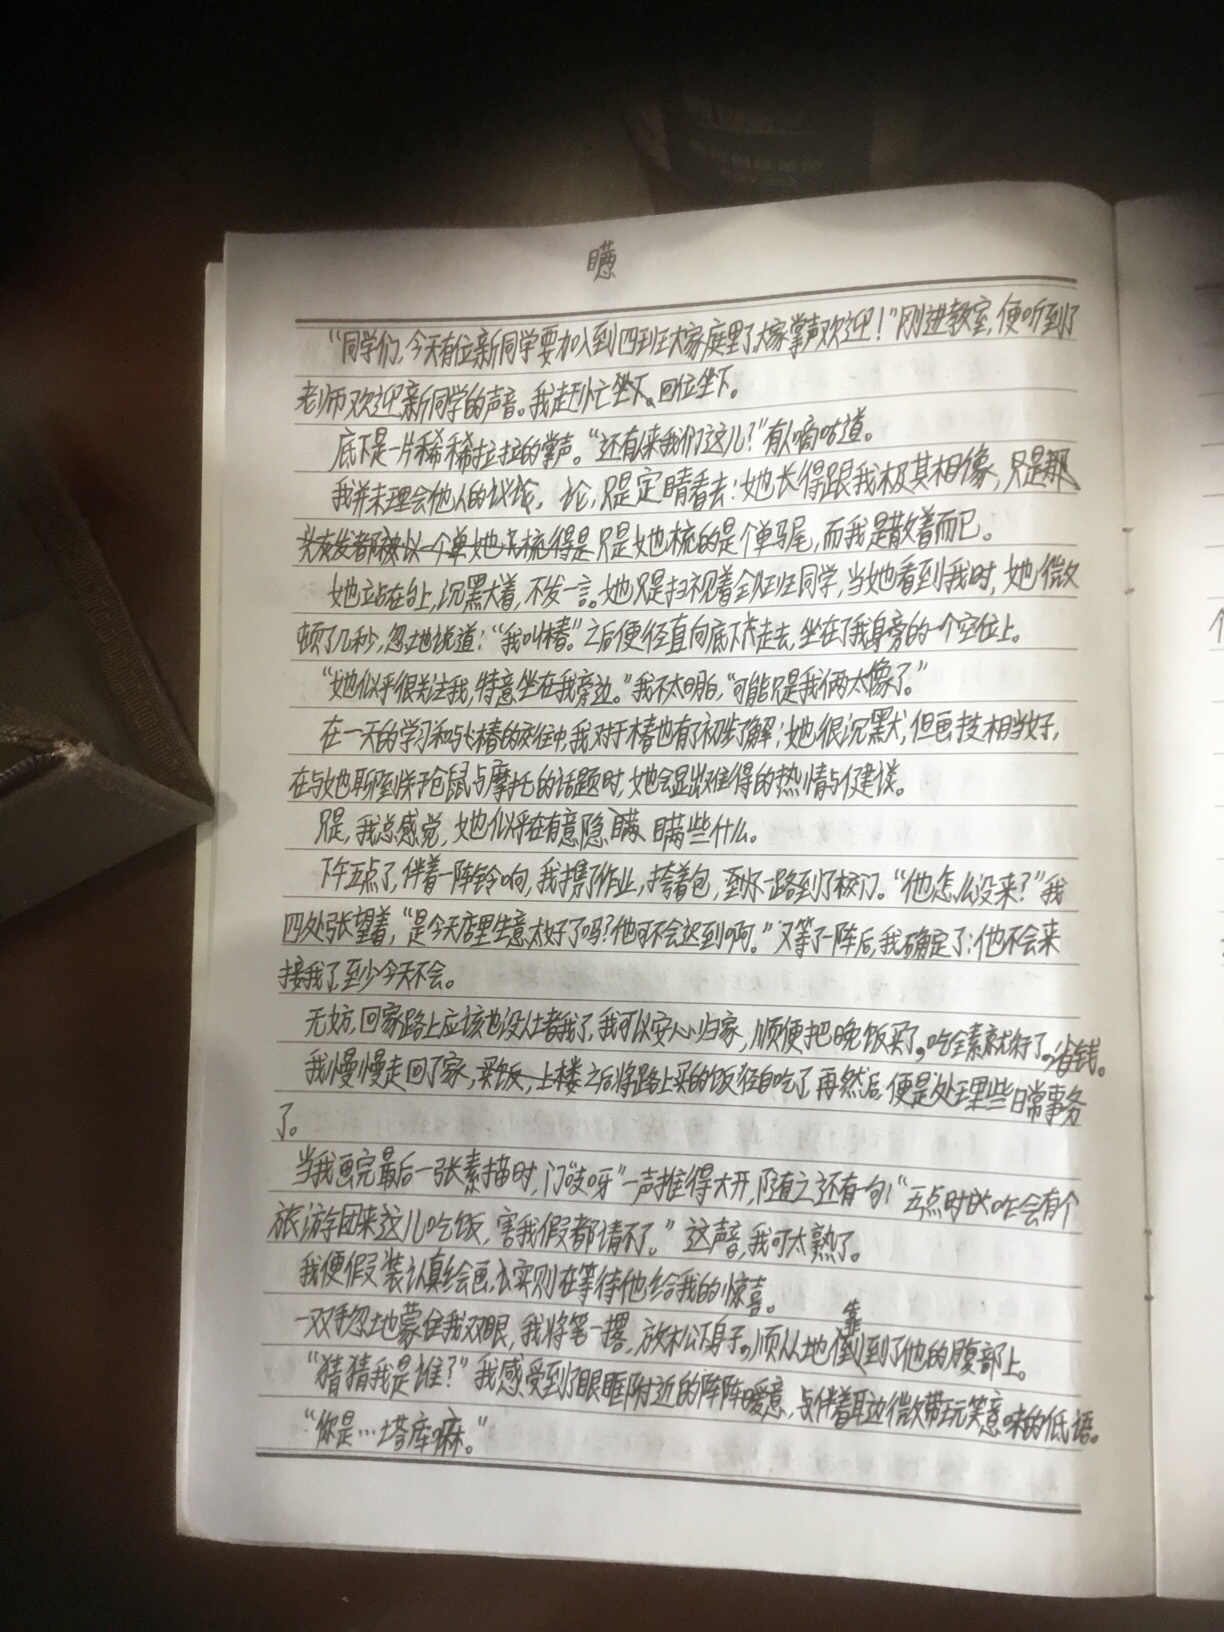 "同学们,今天有位新同学要加入到四班大家庭里了,大家掌声欢迎!"刚进教室,便听到了
老师欢迎新同学的声音。我赶忙坐下、回位坐下。
底下是一片稀稀拉拉的掌声。"还有人来我们这儿?"有人嘀咕道。
我并未理会他人的议论,只是定睛看去:她长得跟我极其相像,只是那
只是她梳的是个单马尾,而我是散着而已。
她立站在台上,沉默着,不发一言。她只是扫视着全班同学,当她看到我时,她微
顿了几秒,忽地说道:"我叫椿。"之后便径直向底下走去,坐在了我身旁的一个空位上。
"她似乎很关注我,特意坐在我旁边。"我不太明白,"可能只是我俩太像了。"
在一天的学习和与椿的交往中,我对于椿也有了初步了解:她很沉默,但画技相当好,
在与她聊到关于仓鼠与摩托的话题时,她会显出难得的热情与健谈。
只是,我总感觉,她似乎在有意隐瞒些什么。
下午五点了,伴着一阵铃响,我携了作业,挎着包,一路到了校门。"他怎么没来?"我
四处张望着,"是今天店里生意太好了吗?他可不会迟到啊。"又等了一阵后,我确定了:他不会来
接我了,至少今天不会。
无妨,回家路上应该也没人堵我了,我可以安心归家,顺便把晚饭买了,吃全素就行了,省钱。
我慢慢走回了家,上楼之后将路上买的饭径自吃了,再然后,便是处理些日常事务
了。
当我画完最后一张素描时,门"吱呀"一声推得大开,随之还有一句:"五点时候咋会有个
旅游团来这儿吃饭,害我假都请不了。"这声音,我可太熟了。
我便假装认真绘画,实则在等待他给我的惊喜。
一双手忽地蒙住我双眼,我将笔一撂,放松下身子,顺从地靠到了他的腹部上。
"猜猜我是谁?"我感受到了眼眶附近的阵阵暖意,与伴着耳边微带玩笑意味的低语。
"你是…塔库嘛。"